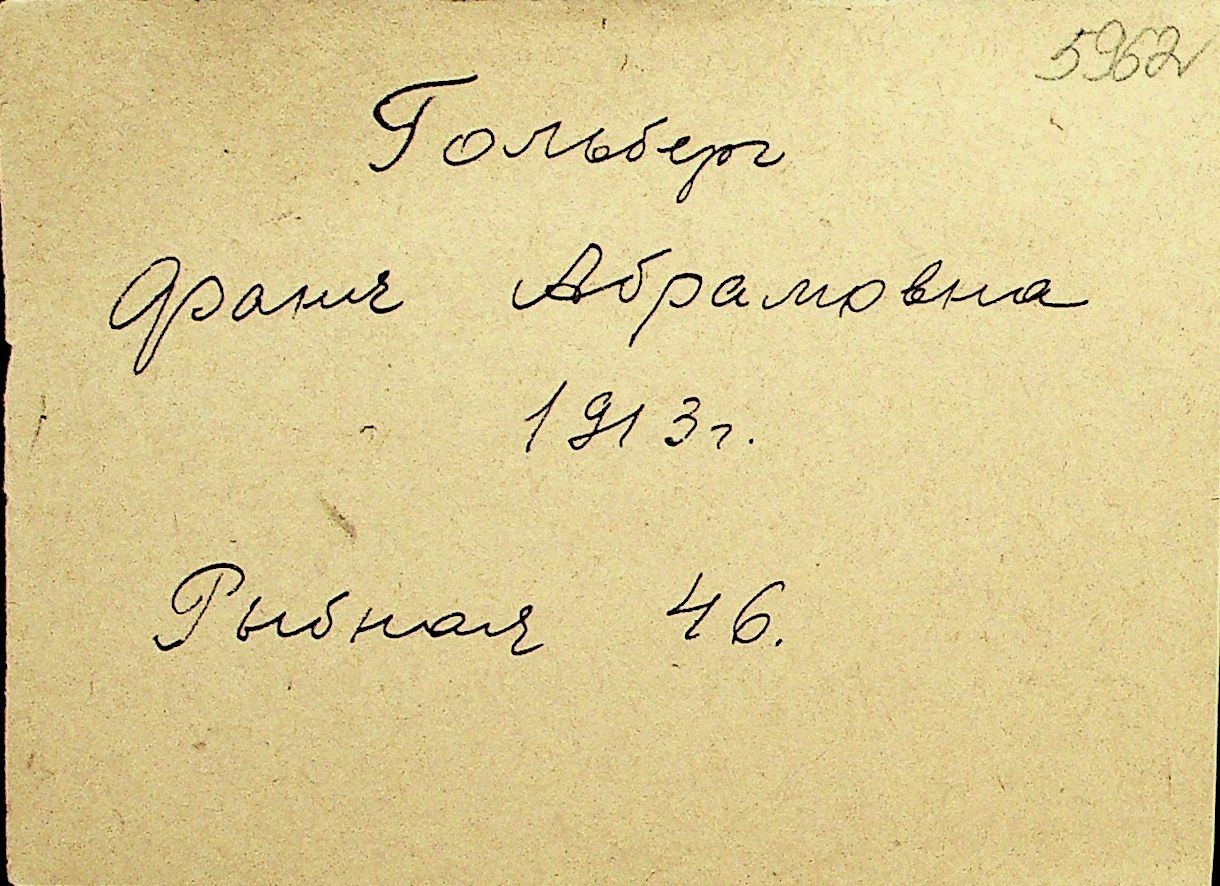 5962
Гольберг
Фаня Абрамовна
1913г.
Рыбная 46.